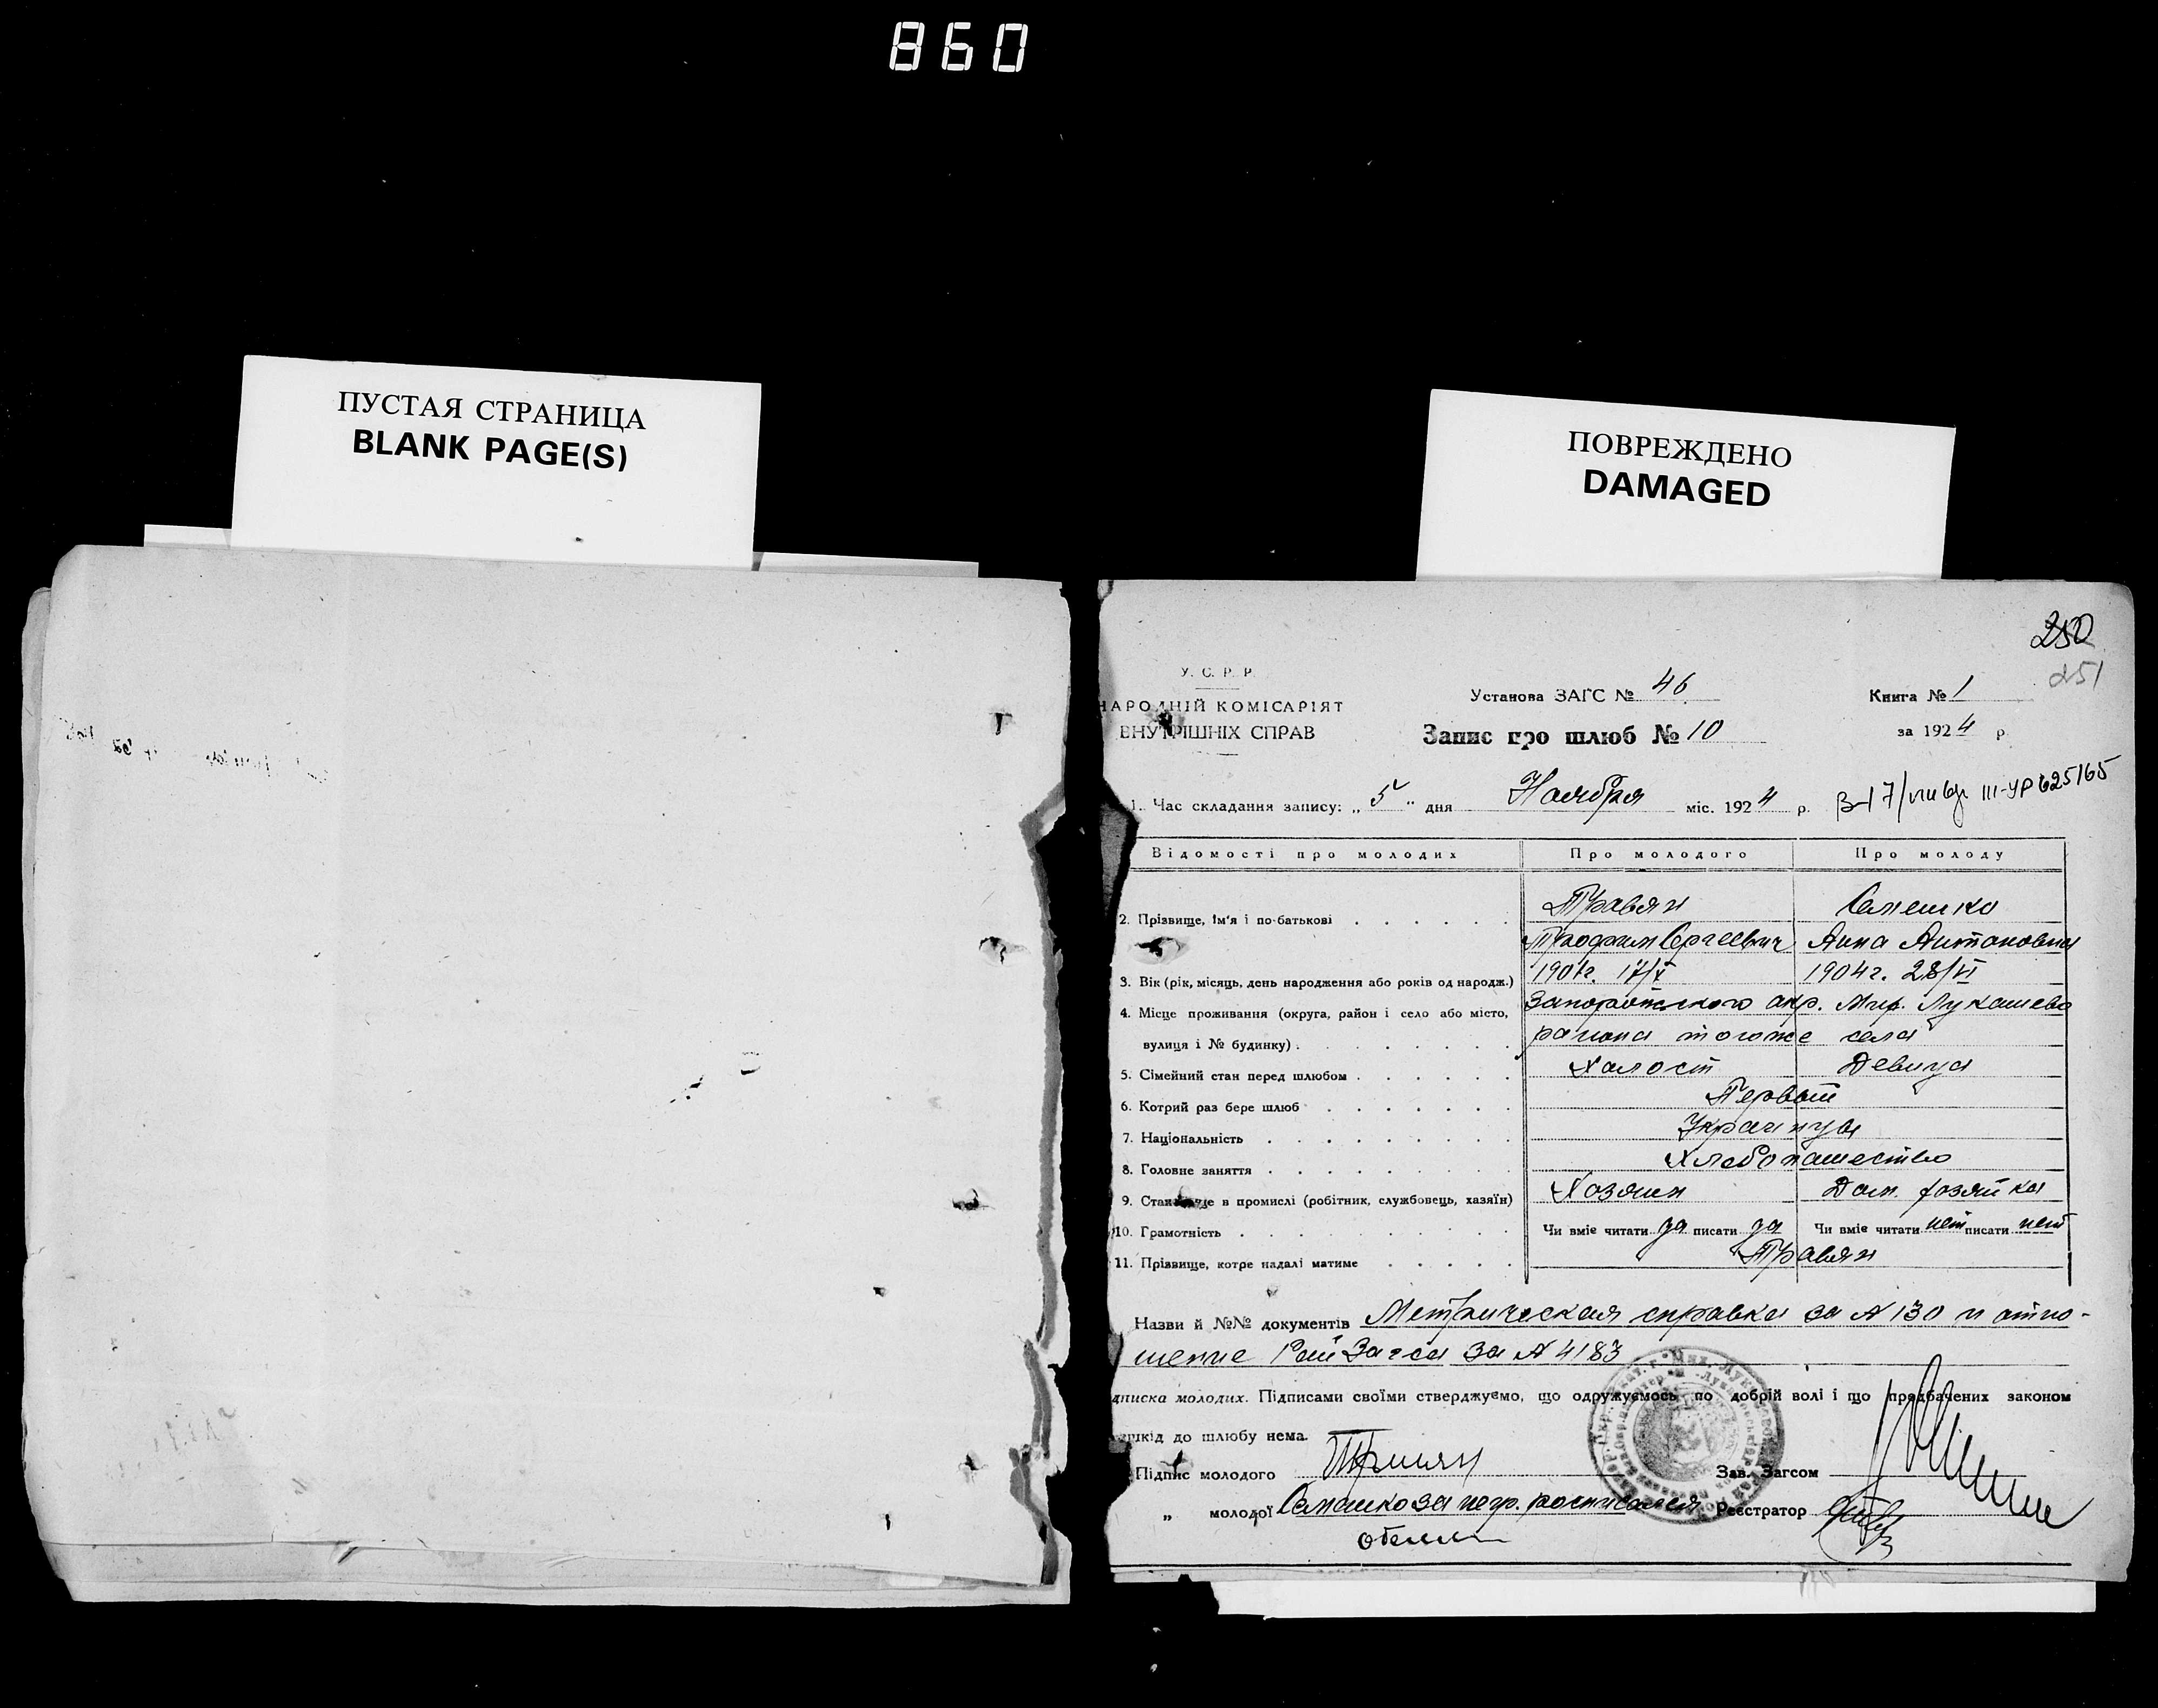 860
ПУСТАЯ СТРАНИЦА
BLANK PAGE(S)
ПОВРЕЖДЕНО
DAMAGED
250
251
У. С. Р. Р.
НАРОДНІЙ КОМІСАРІЯТ
ВНУТРІШНІХ СПРАВ
Установа ЗАГС № 46
Книга № 1
Запис про шлюб № 10
за 1924 р.
1. Час складання запису: „ 5 " дня Ноября міс. 1924 р. III-УР 625165
Відомості про молодих Про молодого Про молоду
2. Прізвище, ім'я і по-батькові Травян Семешко
Трофим Сергеевич Анна Антоновна
3. Вік (рік, місяць, день народження або років од народж.) 1901г. 17/X 1904г. 28/VI
4. Місце проживання (округа, район і село або місто, Запорожского окр. Мих. Лукашево
вулиця і № будинку) района тогоже села
5. Сімейний стан перед шлюбом Холост Девица
6. Котрий раз бере шлюб Первый
7. Національність Украинцы
8. Головне заняття Хлебопашество
9. Становище в промислі (робітник, службовець, хазяїн) Хозяин Дом. хозяйка
10. Грамотність Чи вміє читати да писати да Чи вміє читати нет писати нет
11. Прізвище, котре надалі матиме Травян
Назви й №№ документів Метрическая справка за № 130 и отно-
шение Рай Загса за № 4183
дписка молодих. Підписами своїми стверджуємо, що одружуємось по добрій волі і що предбачених законом
шкід до шлюбу нема.
Підпис молодого Зав. Загсом
„ молодої Семашко за негр. росписался Реєстратор